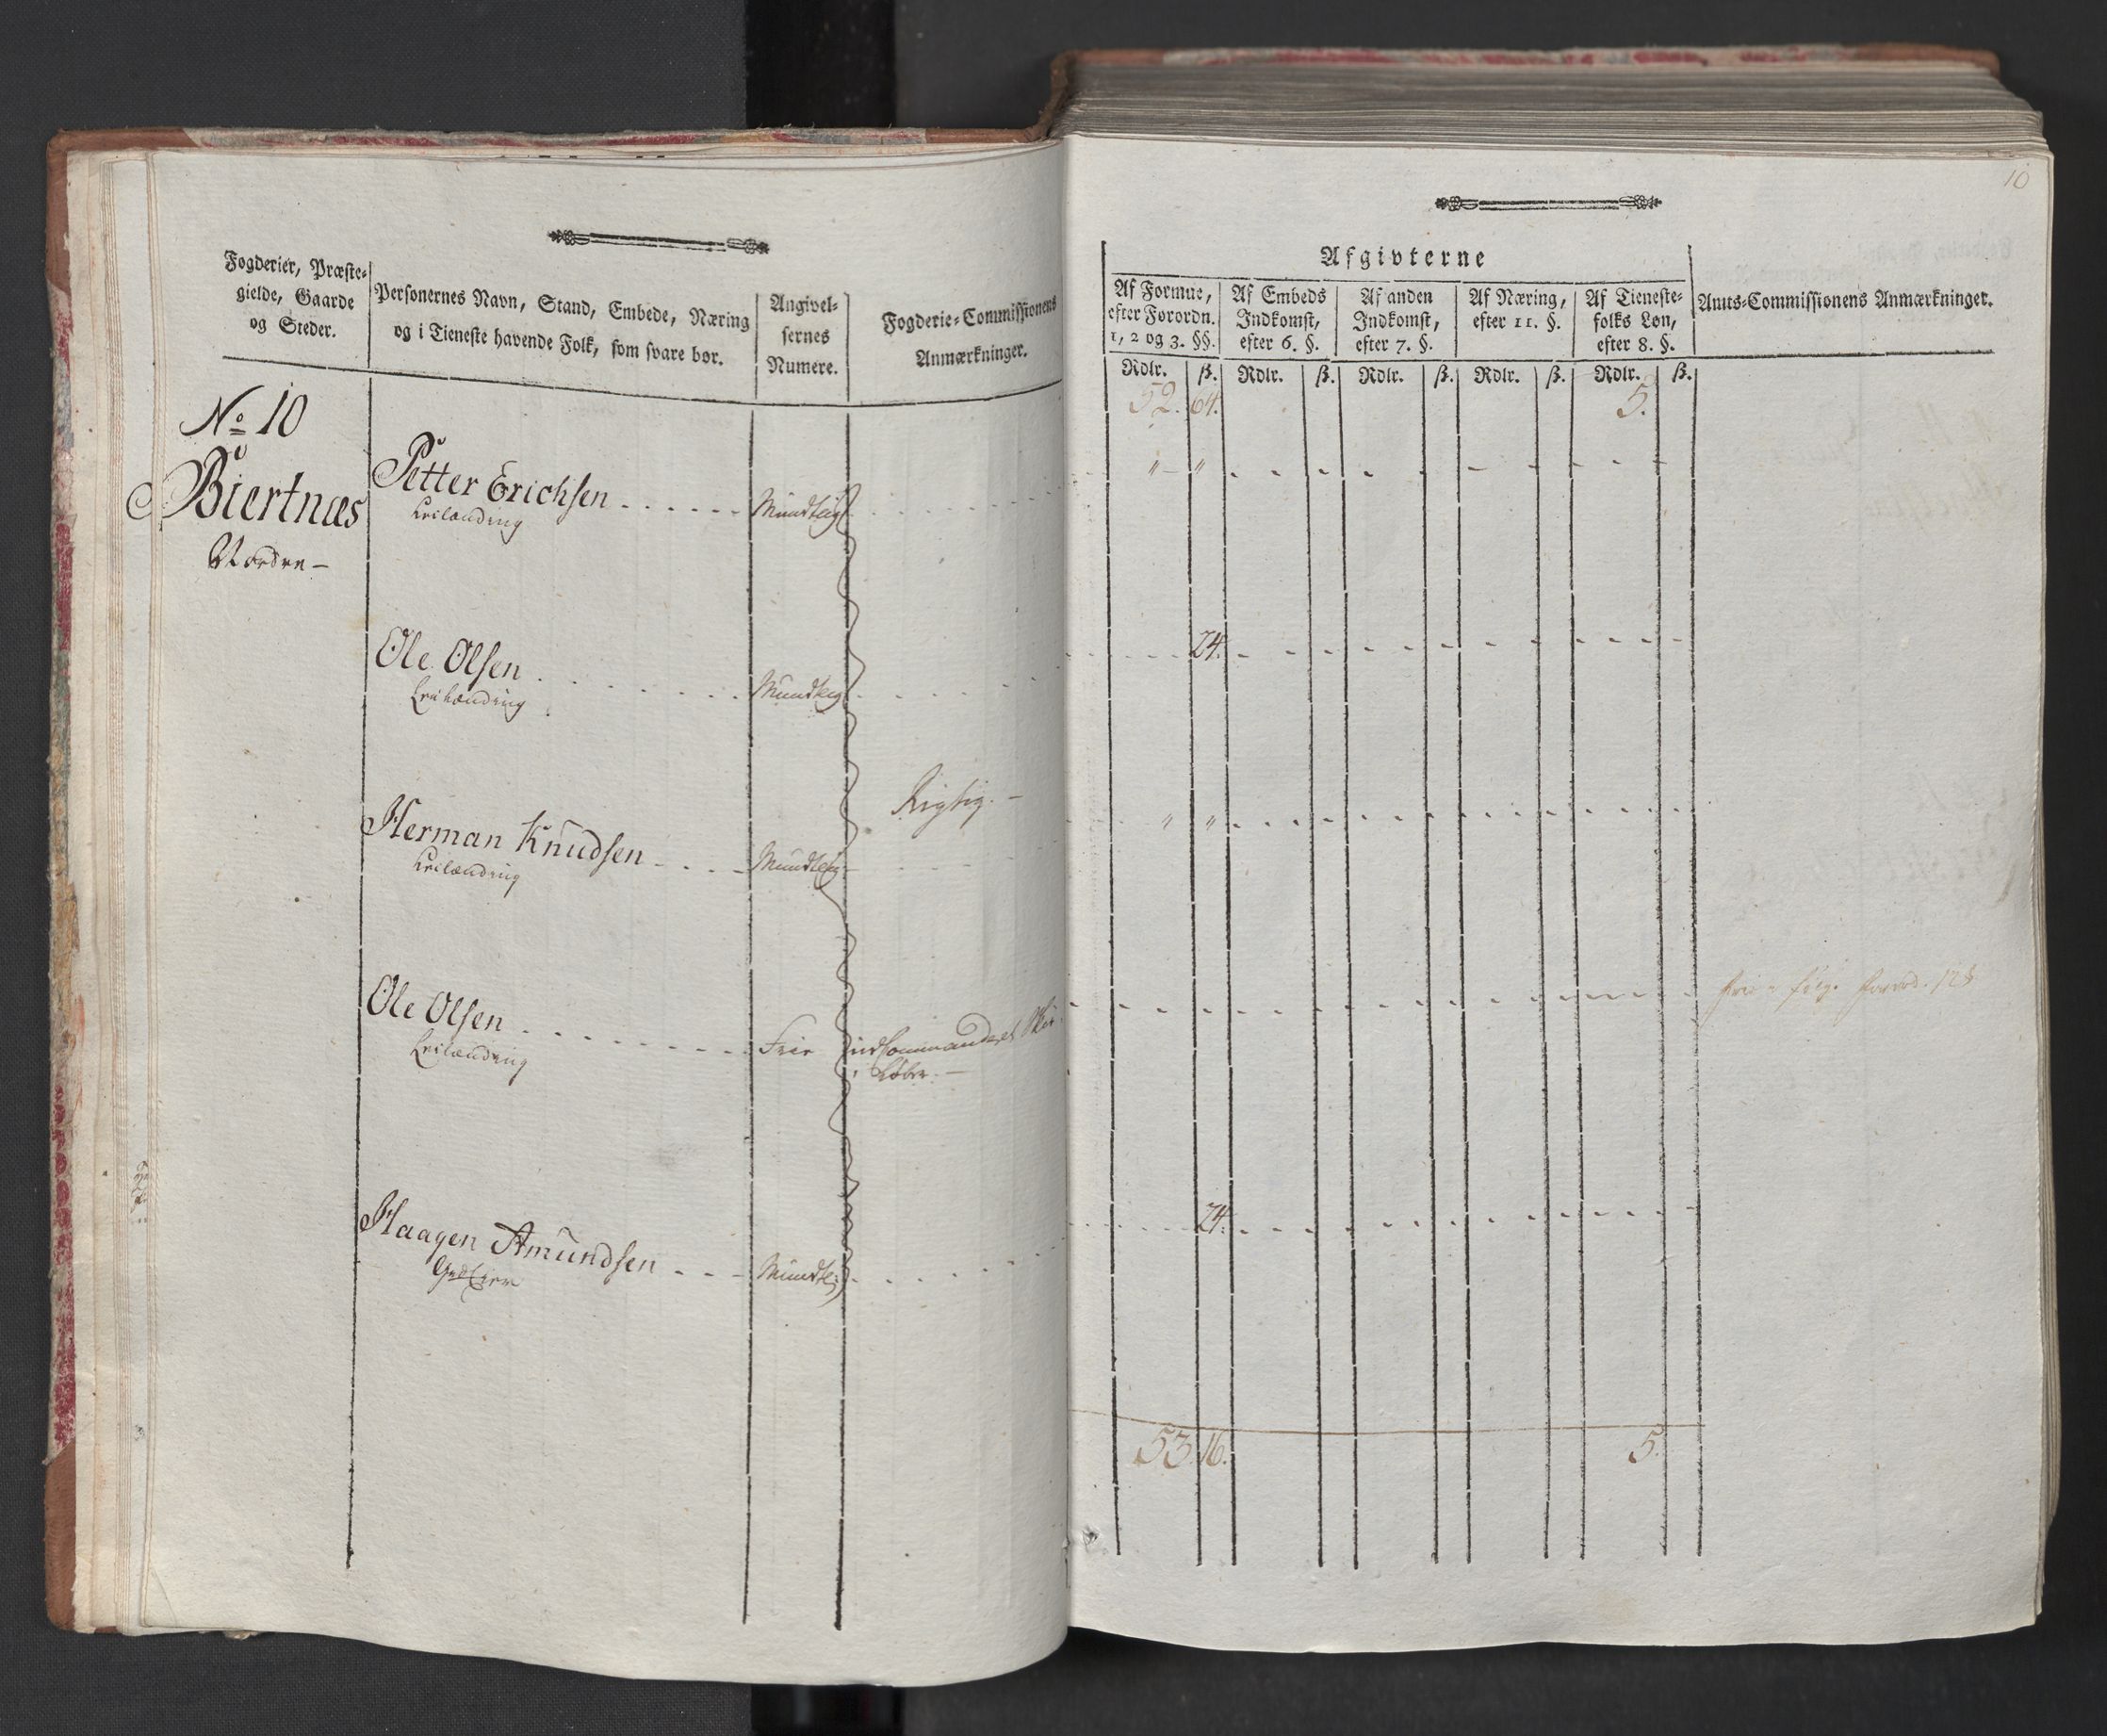 Fogderier, Præste-
gielde, Gaarde
og Steder.
Personernes Navn, Stand, Embede, Næring
og i Tieneste havende Folk, som svare bør.
Angivel-
sernes
Numere.
Fogderie-Commissionens
Anmærkninger.
No 10
Biertnæs
Nordre
Petter Erichsen
Leilænding
Mundtlig
Ole Olsen
Leilænding
Mundtlig
Herman Knudsen
Leilænding
Mundtlig
Rigtig.
Ole Olsen
Leilænding
Frie
indCommanderet Skie
Løber.
Haagen Amundsen
Mundtlig
10
Afgivterne
Af Formue,
efter Forordn.
1, 2 og 3. §§.
Af Embeds
Indkomst,
efter 6. §.
Af anden
Indkomst,
efter 7. §.
Af Næring,
efter 11. §.
Af Tieneste-
folks Løn,
efter 8. §.
Amts-Commissionens Anmærkninger.
Rdlr. ß. Rdlr. ß. Rdlr. ß. Rdlr. ß. Rdlr. ß.
52. 64. 5.
" "
24.
" "
frie Forord.
24.
53. 16. 5.